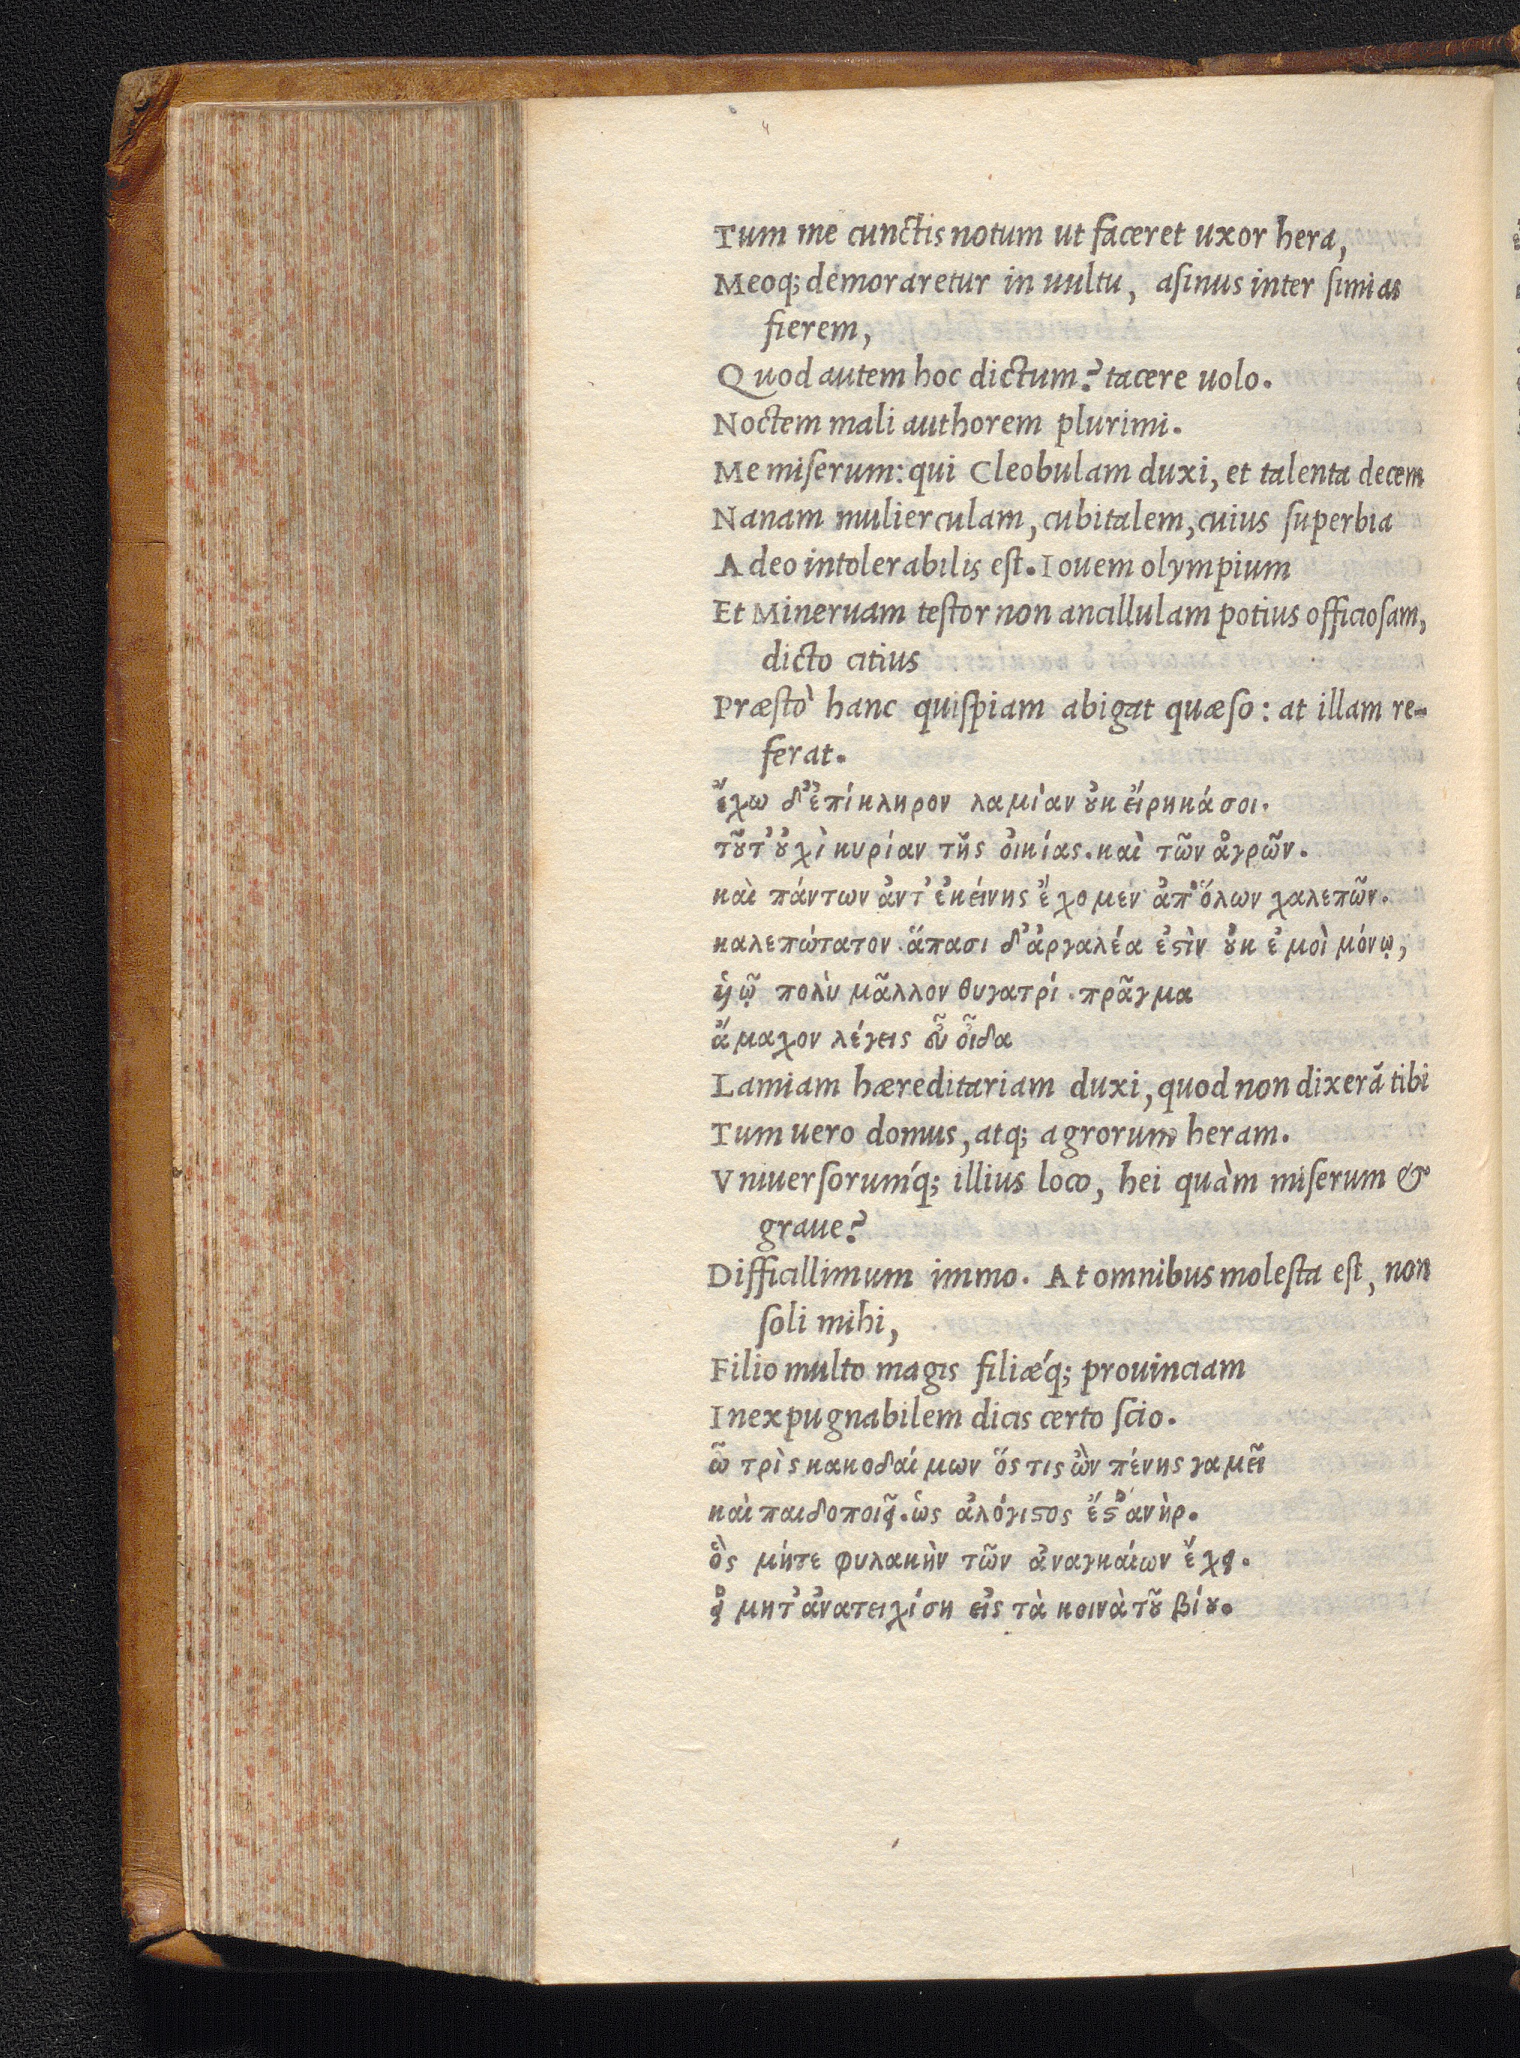 Tum me cunctis notum ut faceret uxor hera,
Meoq; demoraretur in uultu, asinus inter simias
fierem,
Quod autem hoc dictum? tacere uolo.
Noctem mali authorem plurimi.
Me miserum: qui Cleobulam duxi, et talenta decem
Nanam mulierculam, cubitalem, cuius superbia
Adeo intolerabilis est. Iouem olympium
Et Mineruam testor non ancillulam potius officiosam,
dicto citius
Præstò hanc quispiam abigat quæso: at illam re-
ferat.
ἔχω δ' ἐπίκληρον λαμίαν οὐκ εἴρηκά σοι.
τοῦτ' οὐχὶ κυρίαν τῆς οἰκίας. καὶ τῶν ἀγρῶν.
καὶ πάντων ἀντ' ἐκείνης ἔχομεν ἀπ' ὅλων χαλεπῶν.
καλεπώτατον ἅπασι δ' ἀργαλέα ἐστὶν οὐκ ἐμοὶ μόνῳ,
ὑῷ πολὺ μᾶλλον θυγατρί. πρᾶγμα
ἄμαχον λέγεις εὖ οἶδα
Lamiam hæreditariam duxi, quod non dixerã tibi
Tum uero domus, atq; agrorum heram.
Vniuersorumq́; illius loco, hei quàm miserum &
graue?
Difficillimum immo. At omnibus molesta est, non
soli mihi,
Filio multo magis filiæq́; prouinciam
Inexpugnabilem dicis certo scio.
ὦ τρὶς κακοδαίμων ὅς τις ὢν πένης γαμεῖ
καὶ παιδοποιεῖ. ὡς ἀλόγιστος ἔστ' ἀνὴρ.
ὃς μήτε φυλακὴν τῶν ἀναγκαίων ἔχει.
εἰ μητ' ἀνατειχίση εἰς τὰ κοινὰ τοῦ βίου.